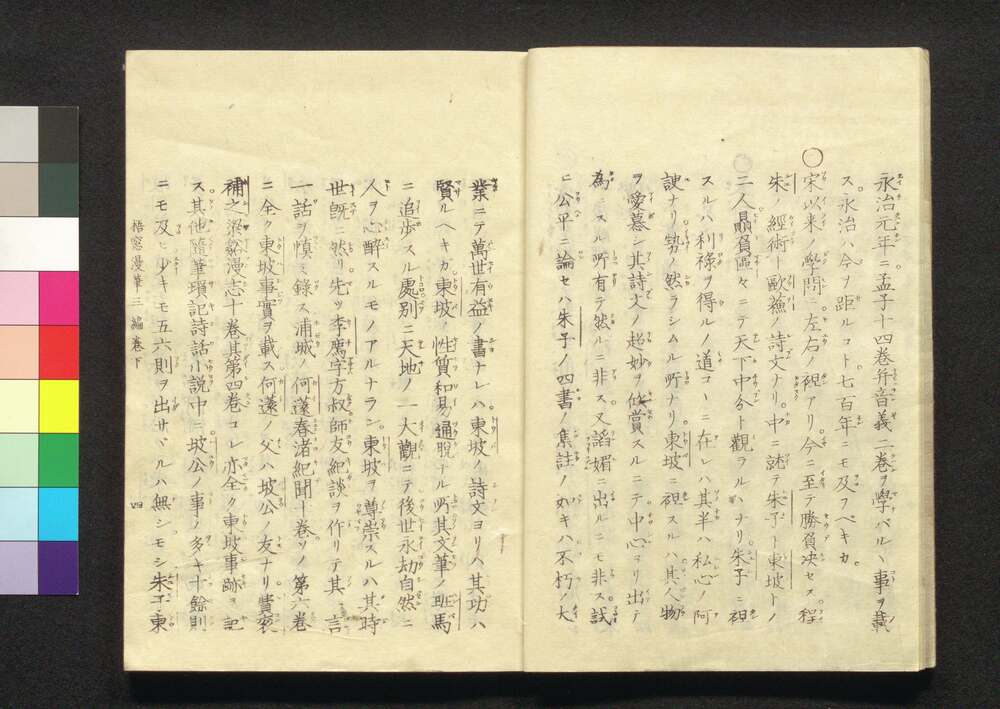 永治元年ニ孟子十四巻并音義二巻ヲ學バルヽ事ヲ載
ス永治ハ今ヲ距ルコト七百年ニモ及フベキカ
○宋以来ノ學問ニ左右ノ袒アリ今ニ至テ勝負决セス程
朱ノ經術ト歐蘓ノ詩文ナリ中ニ就テ朱子ト東坡トノ
二人贔負區々ニテ天下中分ト觀ラルハナリ朱子ニ袒
スルハ利祿ヲ得ルノ道コヽニ在レハ其半ハ私心ノ阿
諛ナリ勢ノ然ラシムル所ナリ東坡ニ袒スルハ其人物
ヲ愛慕シ其詩文ノ超妙ヲ欣賞スルニテ中心ヨリ出テ
為ニスル所有テ然ルニ非ス又謟媚ニ出ルニモ非ス試
ニ公平ニ論セハ朱子ノ四書ノ集註ノ如キハ不朽ノ大
業ニテ萬世有益ノ書ナレハ東坡ノ詩文ヨリハ其功ハ
賢ルヘキカ東坡ノ性質和易通脫ナル所其文筆ノ班馬
ニ追歩スル處別ニ天地ノ一大觀ニテ後世永劫自然ニ
人ヲ心醉スルモノアルナラン東坡ヲ尊崇スルハ其時
世既ニ然リ先ツ李廌字方叔師友紀談ヲ作リテ其一言
一話ヲ慎ミ錄ス浦城ノ何薳春渚紀聞十巻ソノ第六巻
ニ全ク東坡事實ヲ載ス何薳ノ父ハ坡公ノ友ナリ費衮
補之梁谿漫志十巻其第四巻コレ亦全ク東坡事跡ヲ記
ス其他隨筆瑣記詩話小説中ニ坡公ノ事ノ多キ十餘則
ニモ及ヒ少キモ五六則ヲ出サヾルハ無シモシ朱子東
梧窓漫筆三編巻下
四